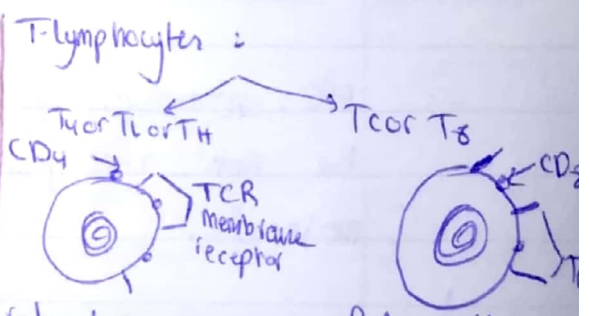 T-lymphocytes :
T4 or TL or TH
Tc or T8
CD4
TCR
membrane
receptor
CD8